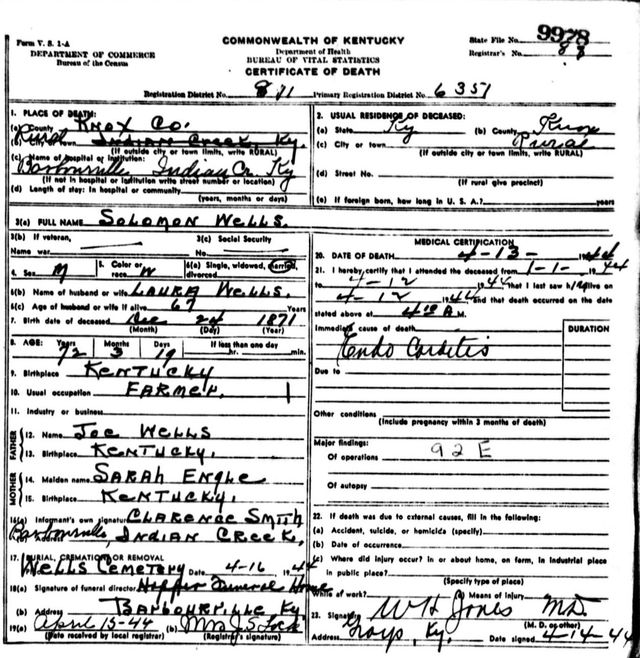 Form V. S. 1-A
DEPARTMENT OF COMMERCE
Bureau of the Census
COMMONWEALTH OF KENTUCKY
Department of Health
BUREAU OF VITAL STATISTICS
CERTIFICATE OF DEATH
State File No. 9978
Registrar's No. 88
Registration District No. 811 Primary Registration District No. 6351
1. PLACE OF DEATH:
(a) County Knox Co.
Rural Indian Creek, Ky.
(If outside city or town limits, write RURAL)
(c) Name of hospital or institution:
Barbourville Indian Cr. Ky
(If not in hospital or institution write street number or location)
(d) Length of stay: In hospital or community
(years, months or days)
2. USUAL RESIDENCE OF DECEASED:
(a) State Ky (b) County Knox
(c) City or town Rural
(If outside city or town limits, write RURAL)
(d) Street No.
(If rural give precinct)
(e) If foreign born, how long in U. S. A.? years
3(a) FULL NAME SOLOMON WELLS.
3(b) If veteran,
Name war
3(c) Social Security
No.
4. Sex M
5. Color or race W
6(a) Single, widowed, married, divorced
6(b) Name of husband or wife LAURA WELLS.
6(c) Age of husband or wife if alive 67 Years
7. Birth date of deceased Dec 24 1871
(Month) (Day) (Year)
8. AGE: Years Months Days If less than one day
72 3 19 hr. min.
9. Birthplace KENTUCKY
10. Usual occupation FARMER
11. Industry or business
FATHER
12. Name JOE WELLS
13. Birthplace KENTUCKY.
MOTHER
14. Maiden name SARAH ENGLE
15. Birthplace KENTUCKY.
16(a) Informant's own signature CLARENCE SMITH
Barbourville, INDIAN CREEK.
17. BURIAL, CREMATION OR REMOVAL
WELLS CEMETERY Date 4-16 1944
18(a) Signature of funeral director Hopper Funeral Home
(b) Address BARBOURVILLE Ky
19(a) April 15-44 (b) Mrs J. S. Lock
(Date received by local registrar) (Registrar's signature)
MEDICAL CERTIFICATION
20. DATE OF DEATH 4-13- 1944
21. I hereby certify that I attended the deceased from 1-1- 1944
to 4-12 1944 that I last saw h alive on
4-12 1944 and that death occurred on the date
stated above at 4 A M.
Immediate cause of death
DURATION
Endo Carditis
Due to
Other conditions
(Include pregnancy within 3 months of death)
Major findings:
92E
Of operations
Of autopsy
22. If death was due to external causes, fill in the following:
(a) Accident, suicide, or homicide (specify)
(b) Date of occurrence
(c) Where did injury occur? In or about home, on farm, in industrial place
in public place?
(Specify type of place)
While at work? (e) Means of injury
23. Signature W H Jones MD.
(M. D. or other)
Address Grays, Ky. Date signed 4-14-44